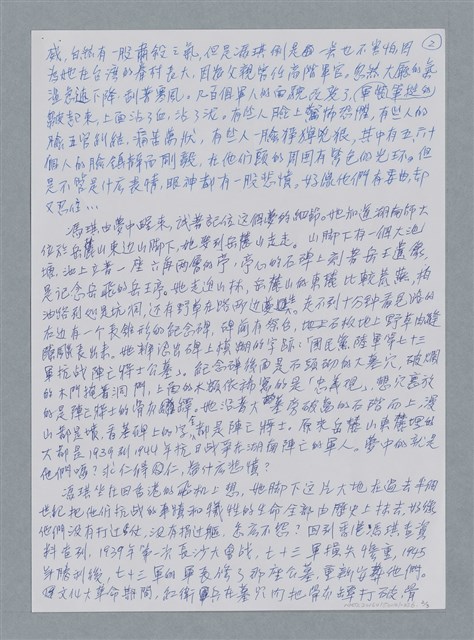 ②
威，自然有一股肅殺之氣，但是馮琪倒是一点也不害怕，因
為她在台灣的眷村長大，因為父親當佐高階軍官。忽然大廳的氣
溫急速下降，刮著寒風。几百個軍人的面貌改变了，（軍服筆挺的）
皺起來，上面沾了血，沾了泥。有些人臉上驚怖恐懼，有些人的
臉五官糾纏，痛苦萬狀，有些人一臉猙獰兇狠，其中有五、六十
個人的臉鎮靜而剛毅，在他們頭的周圍有紫色的光环。但
是不管是什広表情，眼神都有一股悲憤，好像他們有委曲却
又忍住…
馮琪由夢中醒來，試著記住这個夢的細節。她知道湖南師大
位於岳麓山東边山脚下，她要到岳麓山走走。山脚下有一個大池
塘，池上立著一座六角兩層的亭，亭心的石碑上刻著岳王遺像，
是記念岳飛的岳王亭。她走進山林，岳麓山的東麓比較荒蕪，柏
油路到处是坑洞，还有野草在路两边。走不到十分钟看見路的
左边有一个長錐形的記念碑，碑前有祭台，地上石板地上野草由縫
隙長出來。她辨認出碑上模糊的字跡：「國民黨陸軍第七十三
軍抗战陣亡將士公墓」。紀念碑後面是石頭砌的大墓穴，破爛
的木門掩著洞門，上面的木板依稀寫的是「忠義祠」，想穴裏放
的是陣亡將士的骨灰罎。她沿著大墓旁破高的石階而上，漫
山都是墳，看墓碑上的字，都是陣亡將士。原來岳麓山東麓埋的
大都是1939到1944年抗日战爭在湖南陣亡的軍人。夢中的就是
他們嗎？求仁得仁，為什広悲憤？
馮琪坐在回香港的飛机上想，她脚下这片大地在過去半個
世紀把他們抗战的事蹟和犧牲的生命全部由歷史上抹去，好像
他們沒有打过仗，沒有捐过軀，怎広不怨？回到香港，馮琪查資
料查到，1939年第一次長沙大會战，七十三軍損失慘重，1945
年勝利後，七十三軍的軍長修了那座公墓，重新安葬他們。
但文化大革命期間，紅衛軍兵在墓穴內把骨灰罎打破，骨